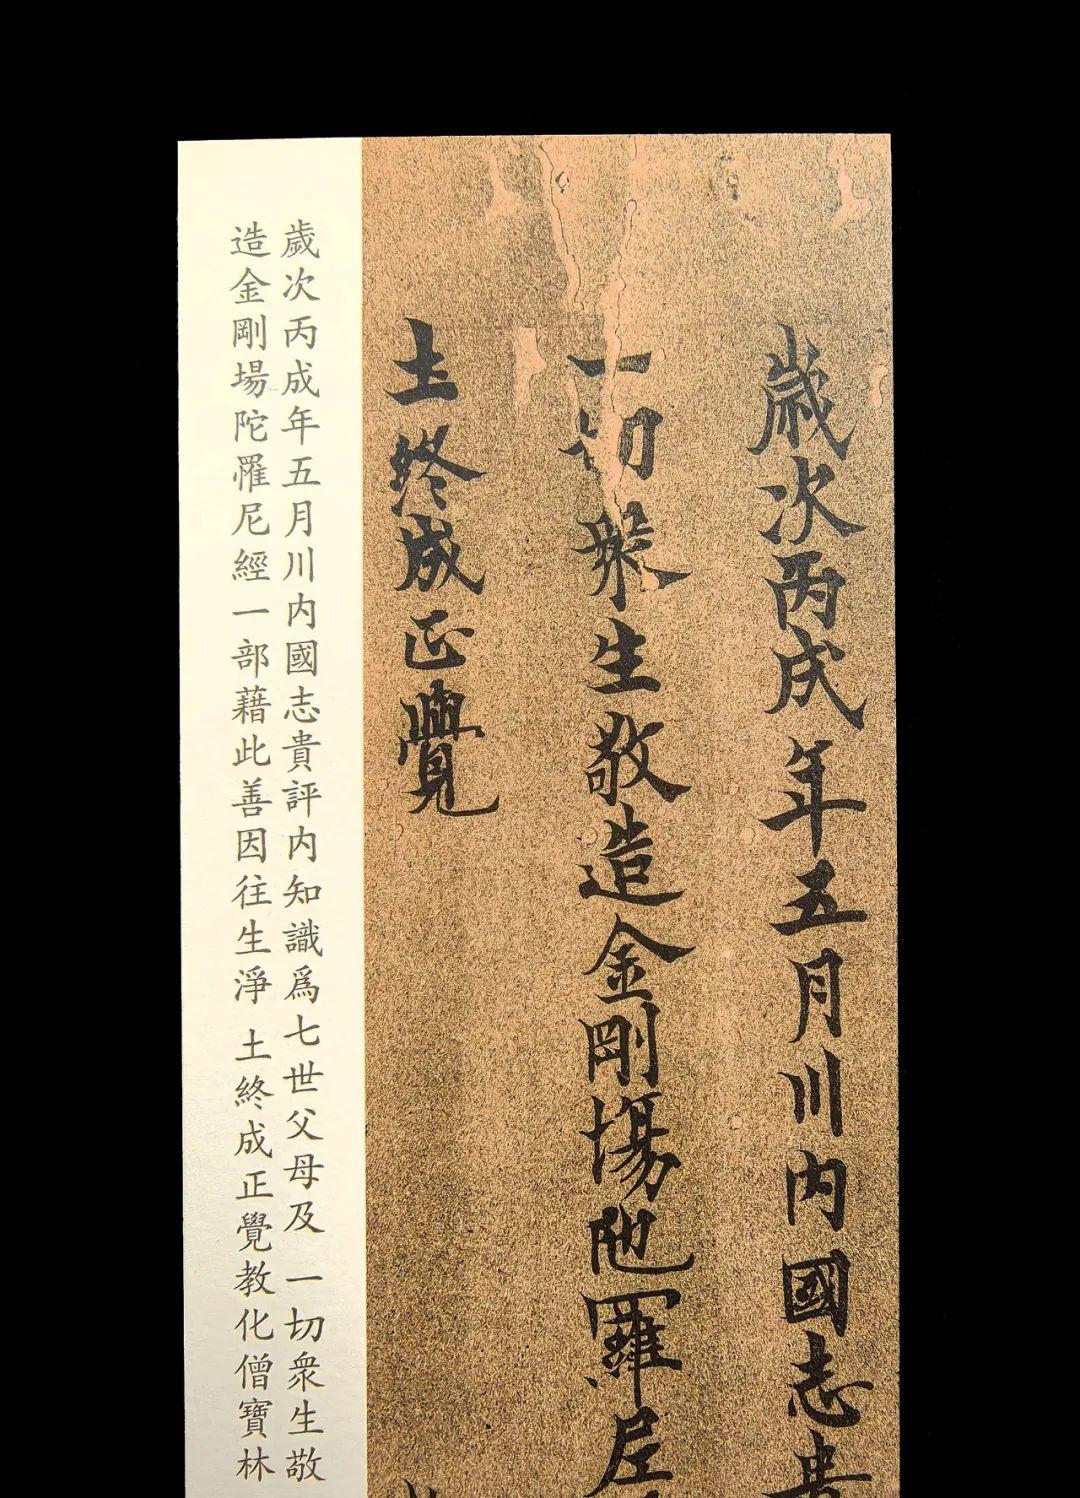 歲次丙戌年五月川内國志貴
一切衆生敬造金剛場陁羅尼
土終成正覺
歲次丙成年五月川内國志貴評内知識爲七世父母及 一切衆生敬
造金剛場陀罹尼經一部藉此善因往生淨 土終成正覺教化僧寶林